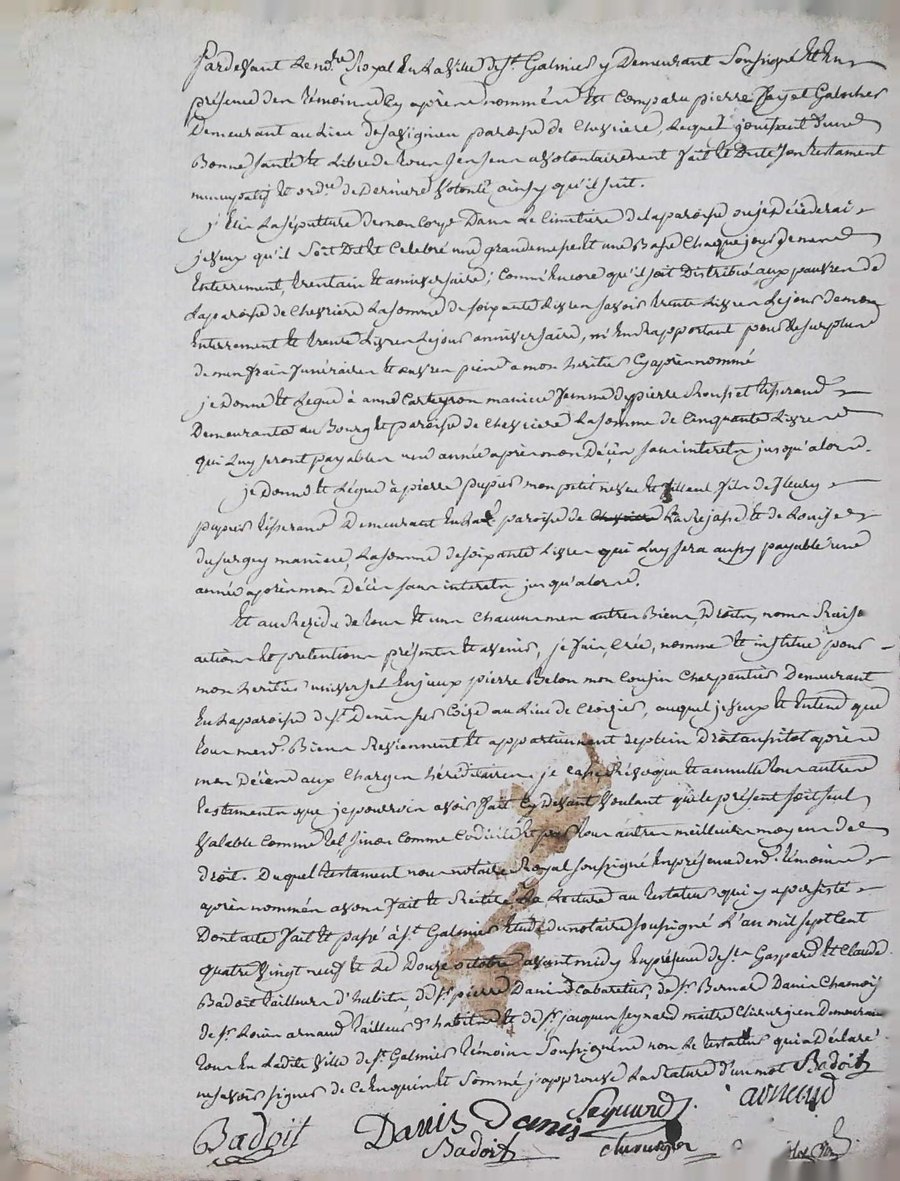 Pardevant le no.re Royal en la ville de st. Galmier y demeurant soussigné et en
présence des témoins cy après nommés est comparu pierre Galocher
demeurant au lieu de paroisse de Chevriere, lequel jouissant d'une
bonne santé et libre de tous ses sens a volontairement fait et dicté son testament
nuncupatif et ord.re de derniere volonté ainsy qu'il suit.
j'élis la sépulture de mon corps dans le cimetière de la paroisse ou je décéderai
je veux qu'il soit dit et célébré une grande messe et une basse chaque jour de mes
enterrement, trentain et anniversaire; comme encore qu'il soit distribué aux pauvres de
la paroisse de Chevriere la somme de soixante livres savoir trente livres le jour de mon
enterrement et trente livres le jour anniversaire, m'en rapportant pour le surplus
de mes frais funéraires et œuvres pies a mon heritier cy après nommé
je donne et legue à anne maniere femme de pierre tisserand
demeurante au Bourg et paroisse de Chevriere la somme de cinquante livres
qui luy seront payables une année après mon décès sans interets jusqu'alors.
je donne et legue à pierre pupier mon petit neveu et filleul fils de fleury
pupier tisserand demeurant en la paroisse de et de Louise
maniere, la somme de soixante livres qui luy sera aussy payable une
année après mon décès sans interets jusqu'alors.
Et au Residu de tous et un chacuns mes autres biens, droits, noms Raisons
actions et pretentions présents et avenirs, je fais, crée, nomme et institue pour
mon heritier universel pierre Belon mon cousin charpentier demeurant
en la paroisse de st. Denis sur Coize au lieu de , auquel je veux et entend que
tous mesd. biens reviennent et appartiennent de plein droit aussitot après
mon décès aux charges héréditaires. je casse, Révoque et annulle tous autres
testaments que je pourrois avoir fait cy devant voulant que le présent soit seul
valable comme tel sinon comme codicille et par tous autres meilleurs moyens de
droit. Duquel testament nous notaire Royal soussigné en présence desd. témoins
après nommés avons fait et réitéré la lecture au testateur qui y a persisté
Dont acte fait et passé à st. Galmier étude du notaire soussigné l'an mil sept cent
quatre vingt neuf et le douze octobre avant midy en présence de srs. Gaspard et Claude
Badoit tailleurs d'habits, de sr. pierre Danis cabaretier, de sr. Bernard Danis
de sr. Louis arnaud tailleur d'habits et de sr. jacques Seynard maitre chirurgien demeurans
tous en ladite ville de st. Galmier témoins soussignés non le testateur qui a déclaré
ne savoir signer de ce enquis et sommé j'approuve la rature d'un mot Badoit
Badoit Danis Danis Seynard arnaud
Badoit chirurgien